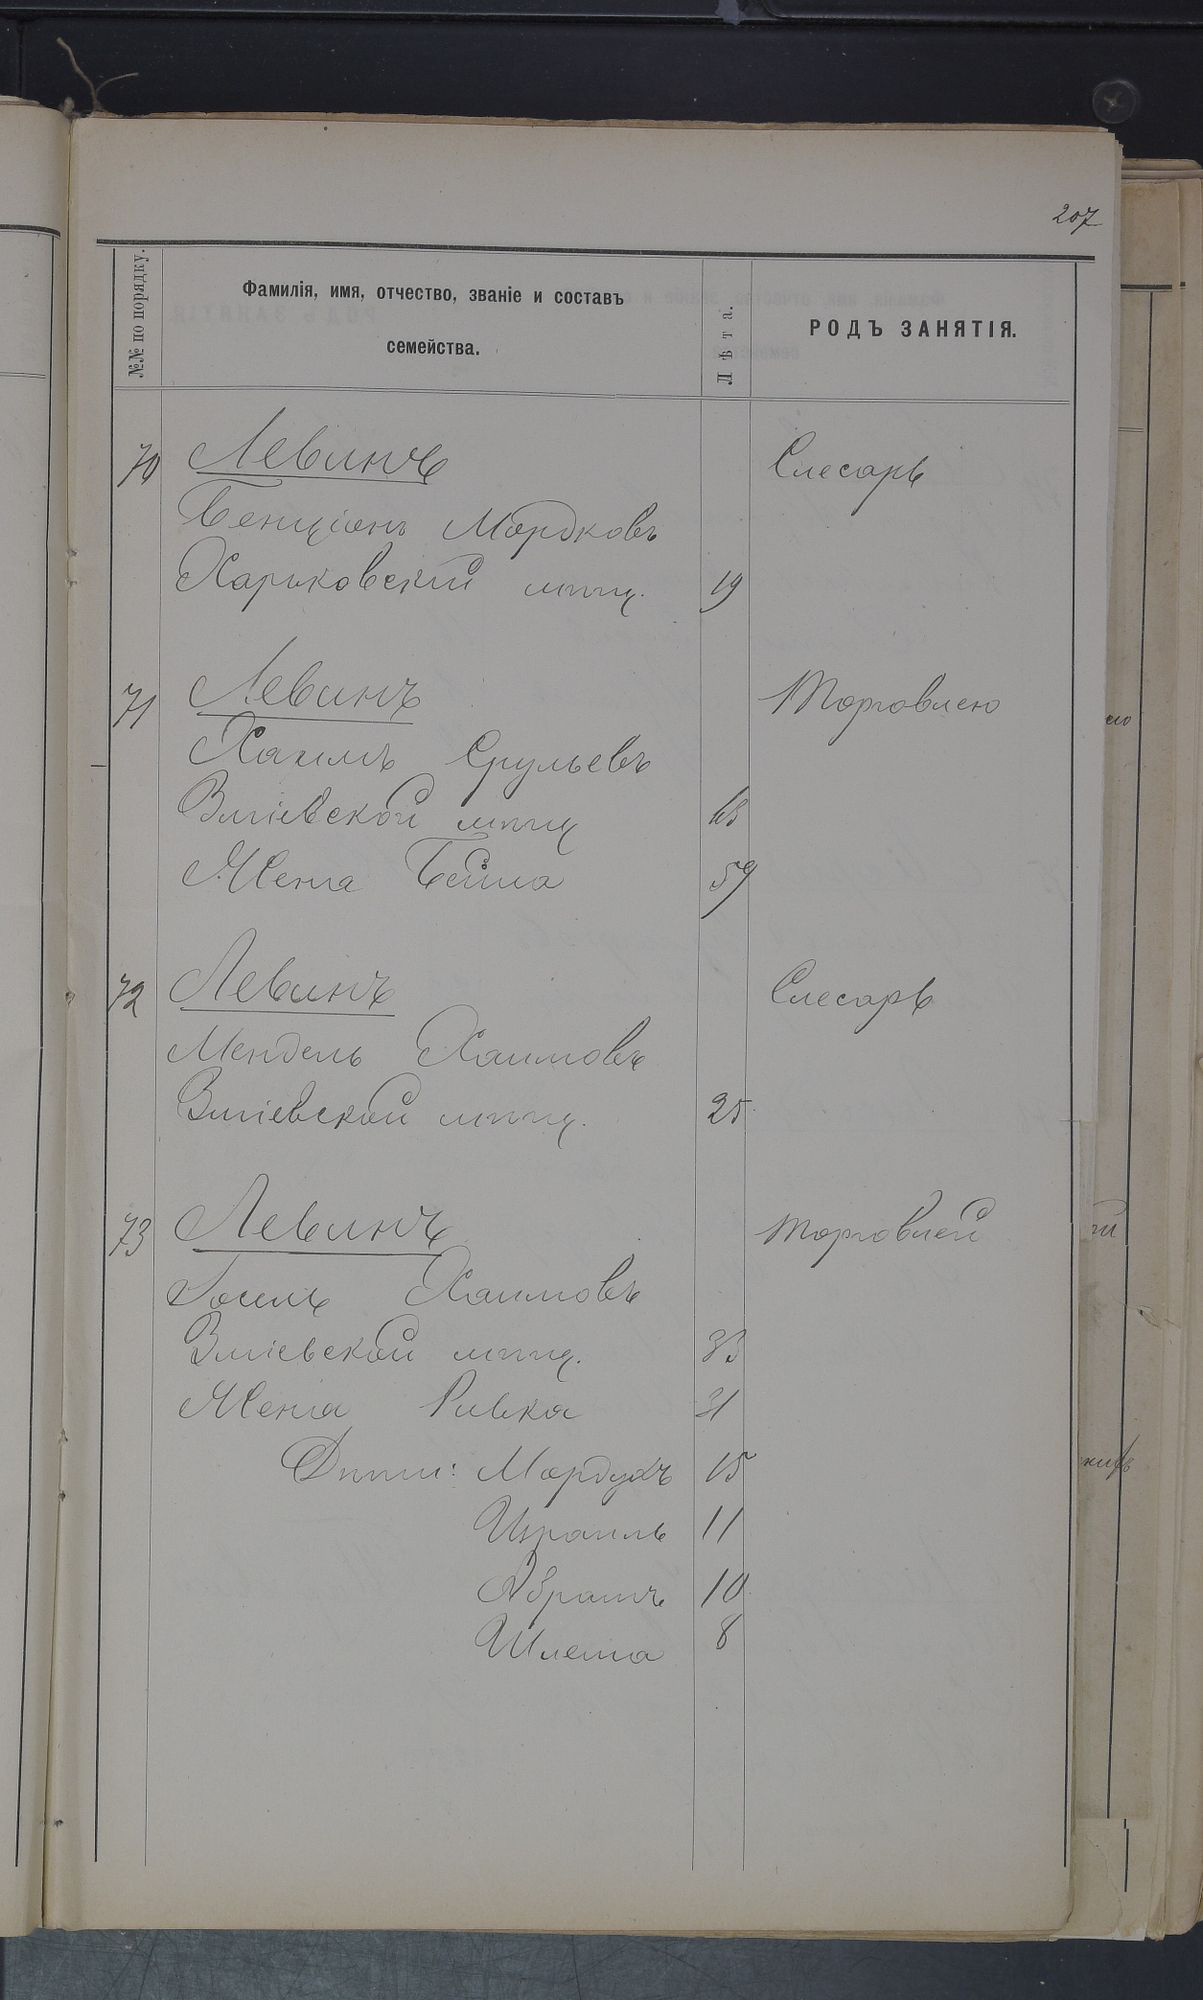 207
№№ по порядку.
Фамилія, имя, отчество, званіе и составъ
семейства.
Лѣта.
РОДЪ ЗАНЯТІЯ.
70 Левинъ Слесарь
Бенціонъ Мордковъ
Харьковскій мѣщ. 19
71 Левинъ Торговлею
Хаимъ Срульевъ
Зміевской мѣщ 63
Жена Бейла 59
72 Левинъ Слесарь
Мендель Хаимовъ
Зміевской мѣщ. 25
73 Левинъ Торговлей
Іосель Хаимовъ
Зміевской мѣщ. 33
Жена Ривка 31
Дѣти: Мордухъ 15
Израиль 11
Абрамъ 10
Шлема 8